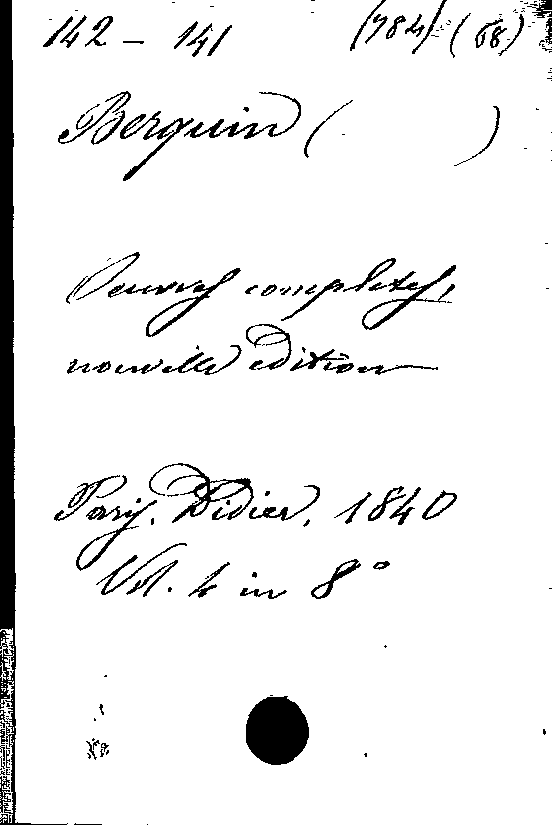 142 - 141 (784) (58)
Berquin ( )
Oeuvres completes,
nouvelle edition
Paris. Didier. 1840
Vol. 4 in 8°